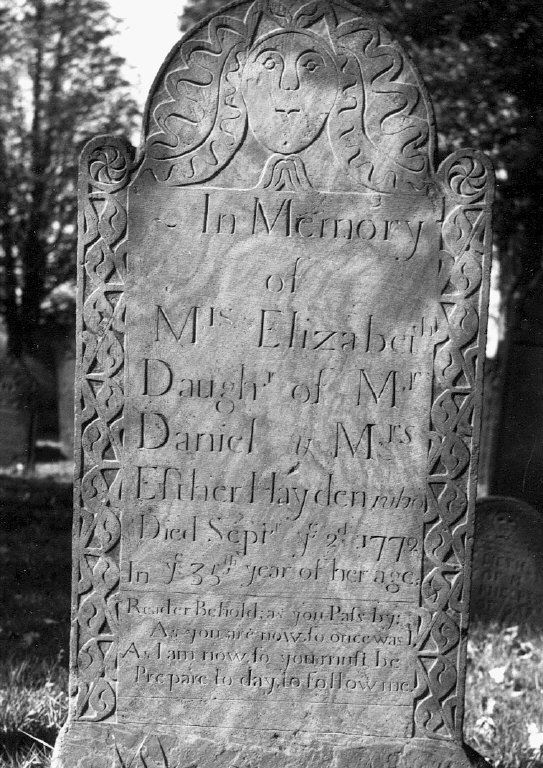 In Memory
of
Mrs Elizabeth
Daughr of Mr
Daniel & Mrs
Esther Hayden who
Died Septr ye 2d 1772
In ye 35th year of her age.
Reader Behold; as you Pass by;
As you are now, so once was I,
As I am now, so you must be
Prepare to day, to follow me